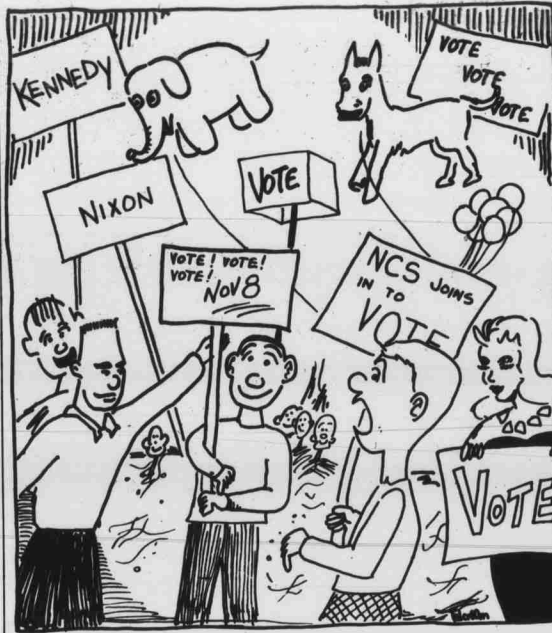 KENNEDY
VOTE
VOTE
VOTE
NIXON
VOTE
VOTE! VOTE!
VOTE!
NOV 8
NCS JOINS
IN TO
VOTE
VOTE